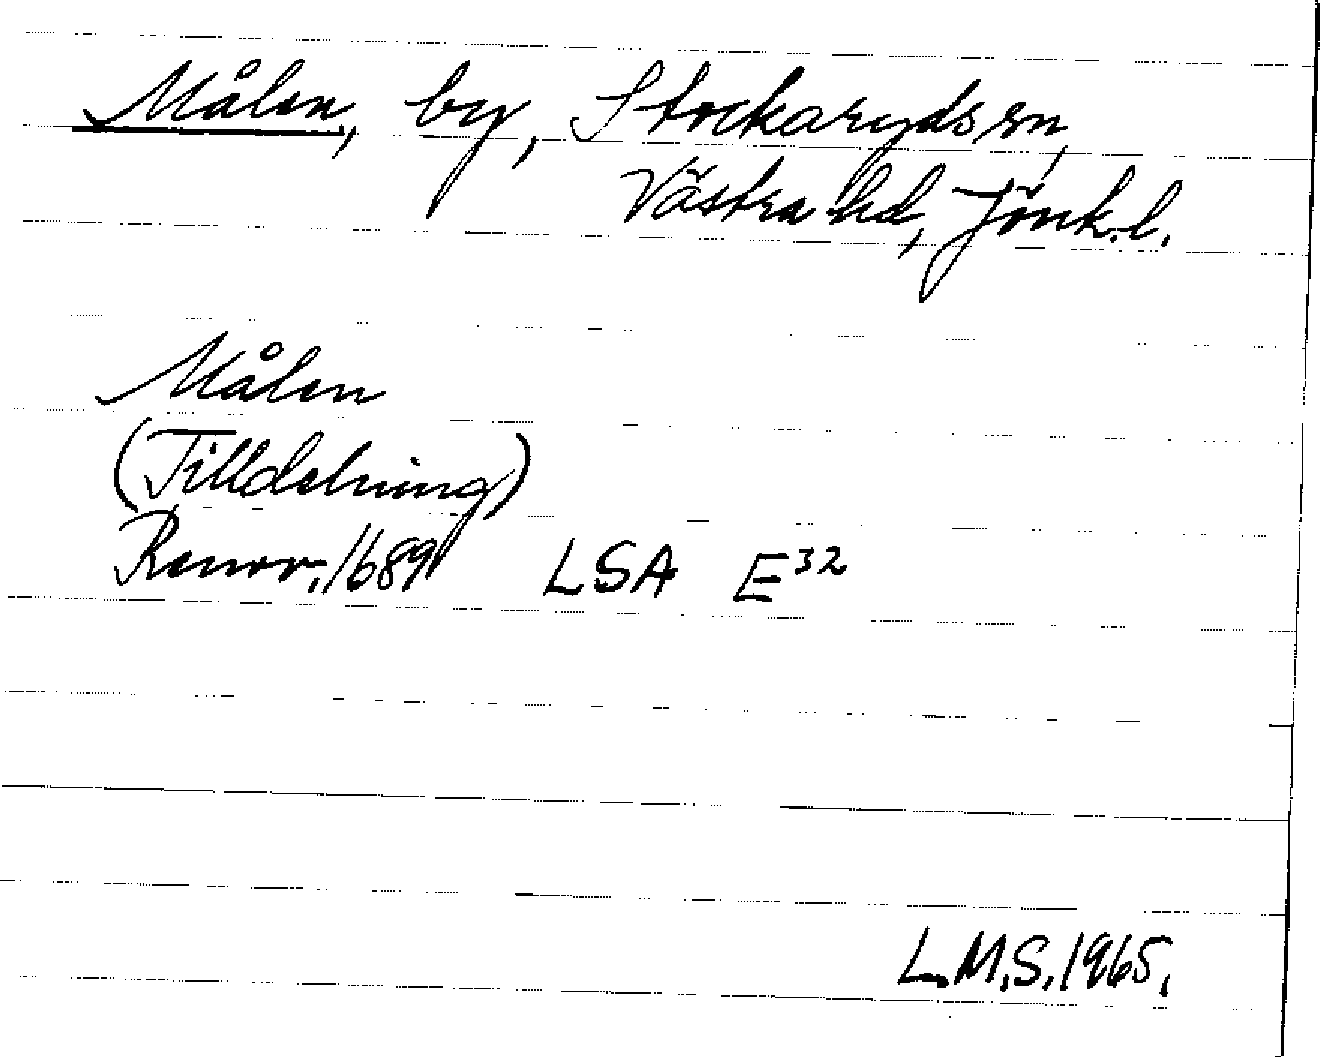 Målen, by, Stockaryds sn,
Västra hd, Jönk.l.
Målen
(Tilldelning)
Renov. 1689 LSA E32
L.M.S. 1965.